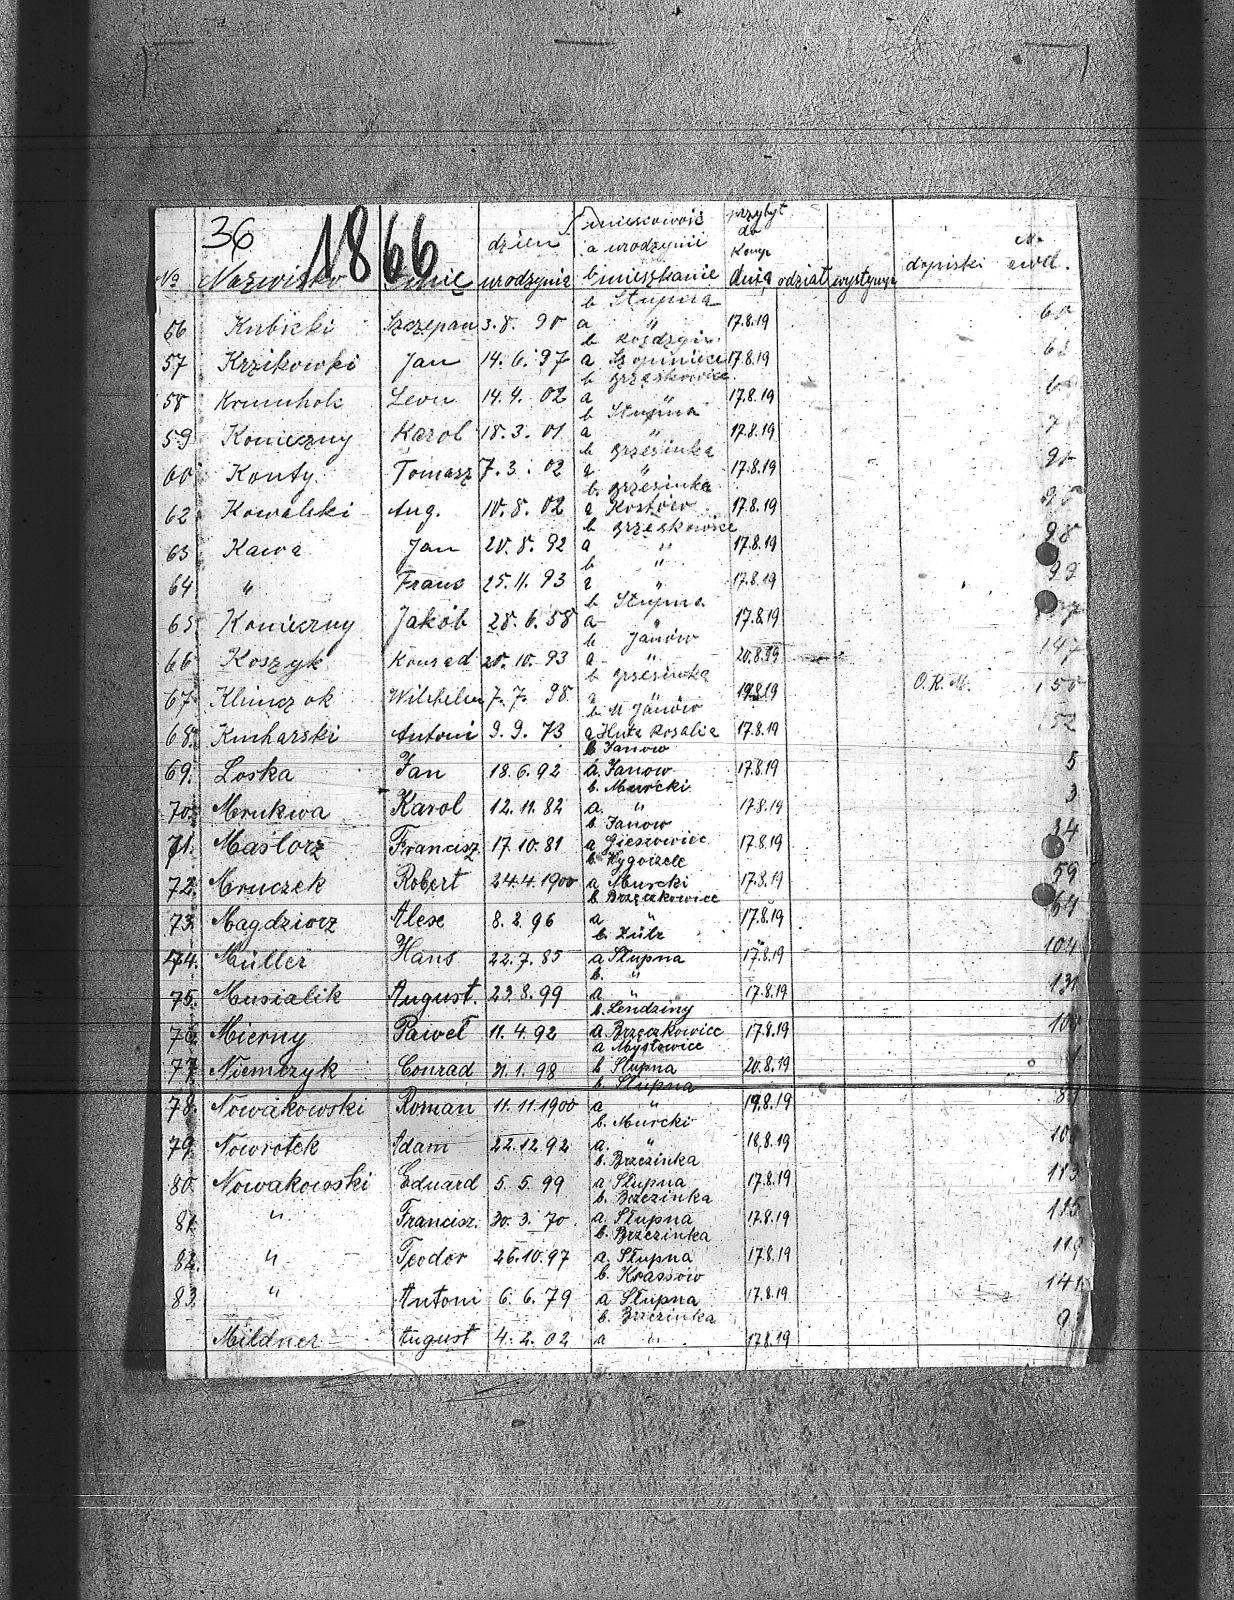 36
1866
№ Nazwisko Imię dzień urodzynia miescowość a urodzynii b mieszkanie przybył do Komp. dnia odział występuje dopiski ewd.
b Słupna
56 Kubicki Szczepan 3.8. 90 a " 17.8.19 60
b Rosdzyn
57 Krzikowki Jan 14.6.97 a Szopiniece 17.8.19
b Brzęskowice
58 Krumhok Leon 14.4.02 a " 17.8.19
b Słupna
59 Konieczny Karol 18.3.01 a " 17.8.19
b Brzesinka
60 Konty Tomasz 7.3.02 a " 17.8.19
b. Brzesinka
62 Kowalski Aug. 10.8.02 a Kostów 17.8.19
b Brzęskowice
63 Kawa Jan 20.8.92 a " 17.8.19 98
b "
64 " Frans 25.11.93 a " 17.8.19 99
b Słupna
65 Konieczny Jakób 28.6.58 a " 17.8.19
b Janów
66 Koszyk Konrad 20.10.93 a " 20.8.19 147
b Brzesinka
67 Klimczok Wilhelm 7.7.98 a " 19.8.19 O.K.M. 150
b. M Janów
68. Kucharski Antoni 9.9.73 a Huta Rosalia 17.8.19 152
b Janow
69. Loska Jan 18.6.92 a. Janow 17.8.19 5
b. Murcki
70. Mrukwa Karol 12.11.82 a. " 17.8.19 3
b. Janow
71. Maslorz Francisz. 17.10.81 a Gieszowiec 17.8.19 34
b. Wygorzele
72. Mruczek Robert 24.4.1900 a Murcki 17.8.19 59
b. Brzęczkowice
73. Magdziorz Alese 8.2.96 a " 17.8.19 64
b. Zülz
74. Müller Hans 22.7.85 a Słupna 17.8.19 104
b. "
75. Musialik August. 23.8.99 a " 17.8.19 131
b. Lendziny
76. Mierny Paweł 11.4.92 a. Brzęczkowice 17.8.19
a Mysłowice
77. Niemczyk Conrad 21.1.98 b Słupna 20.8.19
b. Słupna
78. Nowakowski Roman 11.11.1900 a " 19.8.19 89
b. Murcki
79. Nowrotek Adam 22.12.92 a. " 18.8.19
b. Brzezinka
80. Nowakowski Eduard 5.5.99 a Słupna 17.8.19 113
b. Brzezinka
81. " Francisz. 30.3.70. a. Słupna 17.8.19 115
b. Brzezinka
82. " Teodor 26.10.97 a. Słupna 17.8.19 119
b. Krassow
83. " Antoni 6.6.79 a Słupna 17.8.19
b. Brzezinka
Mildner August 4.2.02 a " 17.8.19